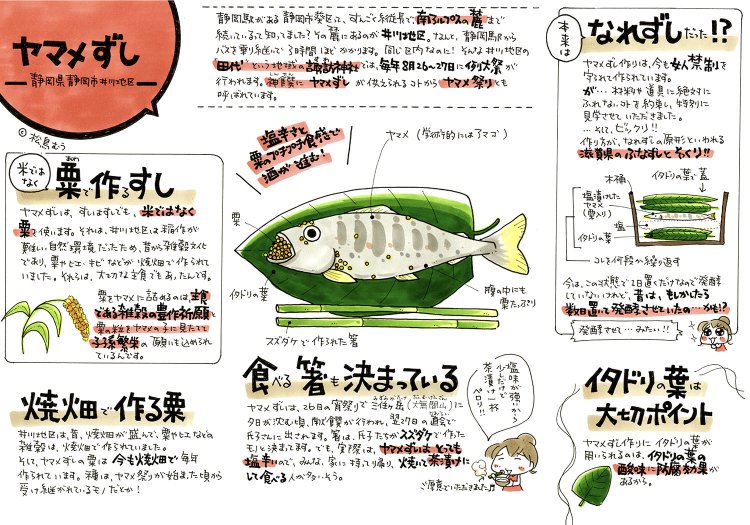 ヤマメずし
静岡県静岡市井川地区
© 松鳥むう
静岡駅がある静岡市葵区って、すんごく縦長で、南アルプスの麓まで
続いているって知ってました？その麓にあるのが井川地区。なんと、静岡駅から
バスを乗り継いで3時間ほどかかります。同じ区内なのに！そんな井川地区の
田代という地域の諏訪神社では、毎年8月26〜27日に例大祭が
行われます。神饌にヤマメずしが供えられるコトからヤマメ祭りとも
呼ばれています。
本来は
なれずしだった!?
ヤマメずし作りは、今も女人禁制で
守られて作られています。
が…材料や道具に絶対に
ふれないコトを約束し、特別に
見学させていただきました。
…そして、ビックリ!!
作り方が、なれずしの原形といわれる
滋賀県のふなずしとそっくり!!
木桶
イタドリの葉で蓋
塩漬けした
ヤマメ
(粟入り)
塩
イタドリの葉
コレを何段か繰り返す
今は、この状態で1日置くだけなので発酵
していないけれど、昔は、もしかしたら
数日置いて発酵させていたの…かも!?
発酵させて…みたい!!
米では
なく
粟で作るすし
あわ
ヤマメずしは、すしはすしでも、米ではなく
粟で使います。それは、井川地区は稲作が
難しい自然環境だったため。昔から雑穀メイン
であり、粟やヒエ・キビなどが焼畑で作られて
いました。それらは、大切な主食でもあったんです。
粟をヤマメに詰めるのは、主食
である雑穀の豊作祈願と
粟の粒をヤマメの子に見たてて
子孫繁栄の願いも込められて
いるんです。
塩辛さと
粟のプチプチ食感で
酒が進む！
ヤマメ (学術的にはアマゴ)
粟
イタドリの葉
腹の中にも
粟たっぷり
スズダケで作られた箸
焼畑で作る粟
井川地区は、昔、焼畑が盛んで、粟やヒエなどの
雑穀は、焼畑で作られていました。
そして、ヤマメずしの粟は今も焼畑で毎年
作られています。種は、ヤマメ祭りが始まった頃から
受け継がれているモノだとか！
食べる箸も決まっている
ヤマメずしは、26日の宵祭りで三佳ヶ岳(大無間山)に
夕日が沈む頃、献饌が行われ、翌27日の直会で
氏子さんに出されます。箸は、氏子たちがスズダケで作った
モノと決まってます。でも、実際は、ヤマメずしはとっても
塩辛いので、みんな、家に持って帰り、焼いて茶漬けに
して食べる人が多いそう。
塩味が強いから
少しだけで
茶漬け一杯
ペロリ!!
ご厚意でいただきました♫
イタドリの葉は
大切ポイント
ヤマメずし作りにイタドリの葉が
用いられるのは、イタドリの葉の
酸味に防腐効果が
あるから。